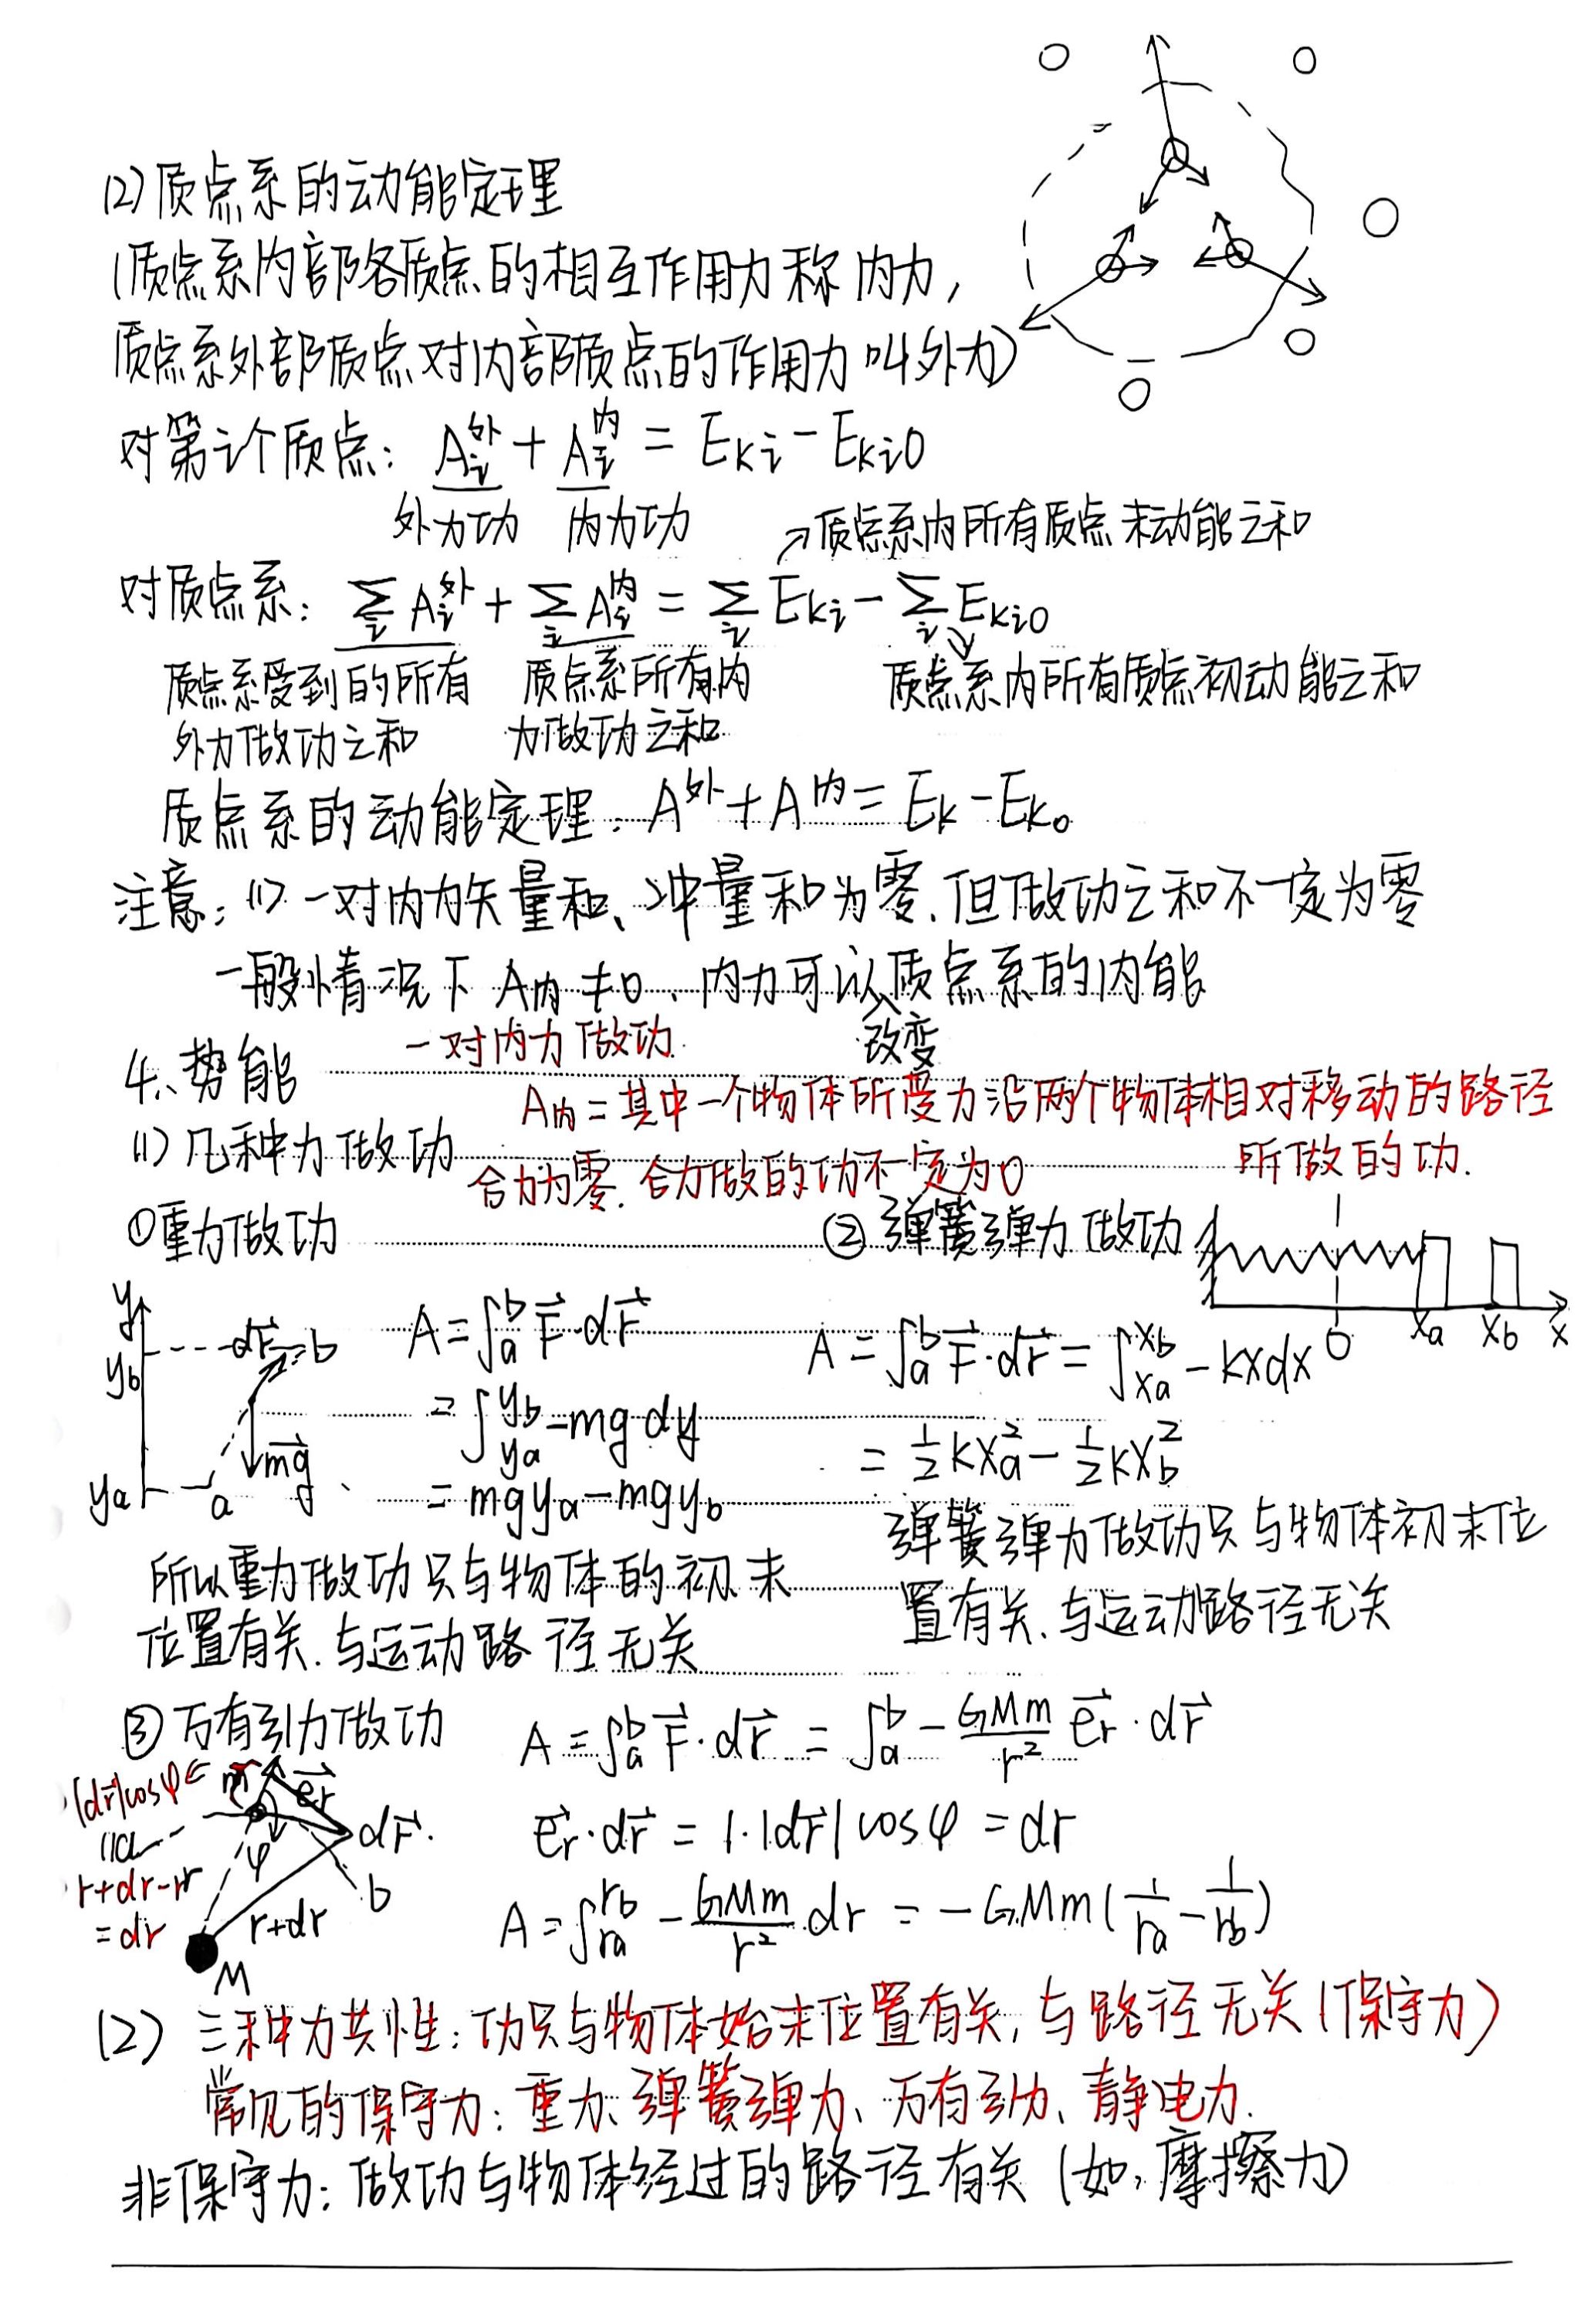 (2)质点系的动能定理
(质点系内部各质点的相互作用力称内力,
质点系外部质点对内部质点的作用力叫外力)
对第i个质点: Aᵢ外 + Aᵢ内 = Eki - Eki0
外力功 内力功
↗质点系内所有质点末动能之和
对质点系: ∑ᵢ Aᵢ外 + ∑ᵢ Aᵢ内 = ∑ᵢ Eki - ∑ᵢ Eki0
质点系受到的所有 质点系所有内 质点系内所有质点初动能之和
外力做功之和 力做功之和
质点系的动能定理: A外 + A内 = Ek - Ek0
注意: (1) 一对内力矢量和、冲量和为零.但做功之和不一定为零
一般情况下 A内 ≠ 0、内力可以改变质点系的内能
一对内力做功
4、势能
A内 = 其中一个物体所受力沿两个物体相对移动的路径
所做的功.
(1) 几种力做功
合力为零.合力做的功不一定为0
①重力做功
y
yb
dr⃗ b
mg⃗
ya a
A = ∫ₐᵇ F⃗·dr⃗
= ∫ya^yb -mg dy
= mgya - mgyb
所以重力做功只与物体的初末
位置有关.与运动路径无关
②弹簧弹力做功
0 xa xb x
A = ∫ₐᵇ F⃗·dr⃗ = ∫xa^xb -kxdx
= ½kxa² - ½kxb²
弹簧弹力做功只与物体初末位
置有关、与运动路径无关
③万有引力做功
A = ∫ₐᵇ F⃗·dr⃗ = ∫ₐᵇ -GMm/r² e⃗r·dr⃗
|dr⃗|cosφ ← m e⃗r
φ dr⃗
r+dr-r
= dr
r+dr b
M
e⃗r·dr⃗ = 1·|dr⃗|cosφ = dr
A = ∫ra^rb -GMm/r² dr = -GMm(1/ra - 1/rb)
(2) 三种力共性: 功只与物体始末位置有关,与路径无关(保守力)
常见的保守力: 重力、弹簧弹力、万有引力、静电力.
非保守力: 做功与物体经过的路径有关 (如,摩擦力)